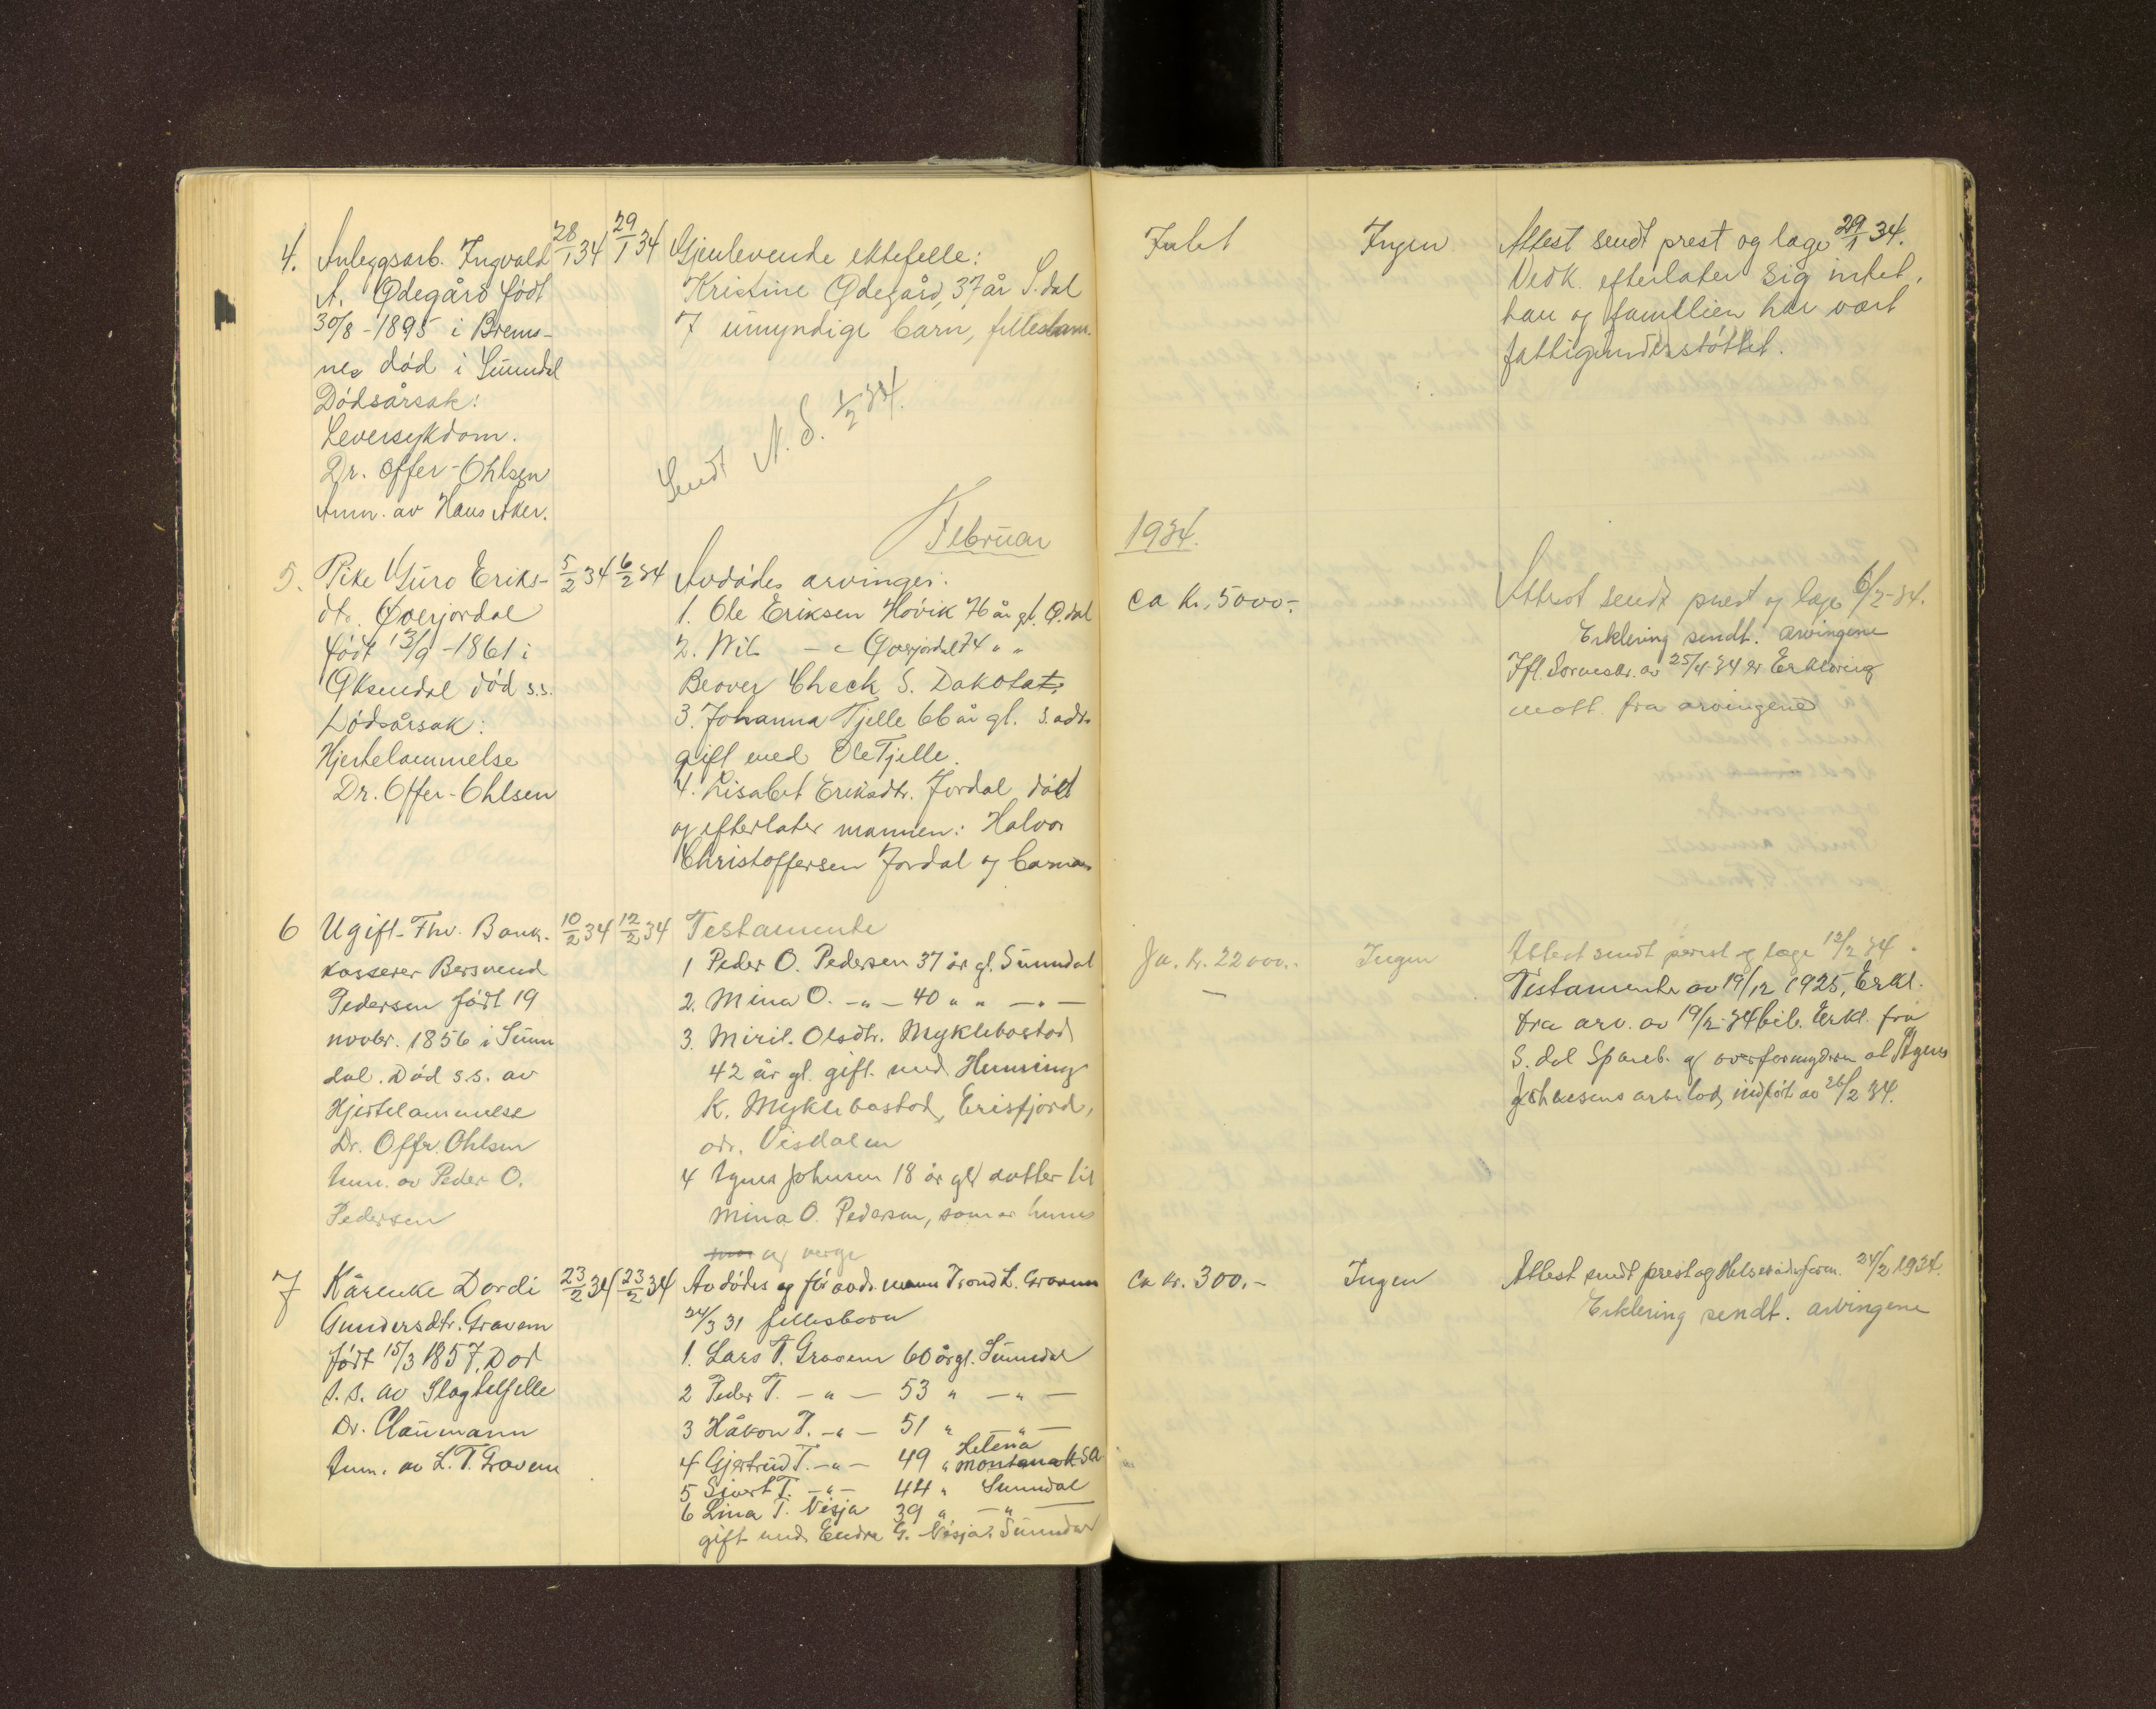 4. Anleggsarb. Ingvald 28/1 34 29/1 34 Gjenlevende ektefelle: Intet Ingen Attest sendt prest og læge 29/1 34.
A. Ødegård født Kristine Ødegård, 37 år S.dal Vedk. efterlater sig intet,
30/8-1895 i Brems- 7 umyndige barn, fellesbarn. han og familien har vært
nes død i Sunndal fattigunderstøttet.
Dødsårsak:
Leversykdom.
Dr. Offer-Ohlsen
Anm. av Hans Aker.
Sendt N. S. 1/2 34.
Februar 1934.
5. Pike Guro Eriks- 5/2 34 6/2 34 Avdødes arvinger: ca kr. 5000.- Attest sendt prest og læge 6/2-34.
dtr. Øverjordal 1. Ole Eriksen Hovik 76 år gl. Ø.dal Erklering sendt. arvingene
født 13/9-1861 i 2. Nils -"- Øverjordal 74 " " Ifl. av 25/4-34 er Erklæring
Øksendal død s.s. Beaver Check S. Dakota mott. fra arvingene
Dødsårsak: 3. Johanna Tjelle 66 år gl. s. adr.
Hjertelammelse gift med Ole Tjelle.
Dr. Offer-Ohlsen 4. Lisabet Eriksdtr. Jordal død
og efterlater mannen: Halvor
Christoffersen Jordal og barn
6 Ugift. Fhv. Bank- 10/2 34 12/2 34 Testamente
kasserer Bersvend 1 Peder O. Pedersen 37 år gl. Sunndal Ja. kr. 22000.- Ingen Attest sendt prest og læge 12/2 34.
Pedersen født 19 2. Mina O. -"- 40 " " -"- Testamente av 19/12 1925, Erkl.
novbr. 1856 i Sunn 3. Mirit. Olsdtr. Myklebostad fra arv. av 19/2-34 bil. Erkl. fra
dal. Død s.s. av 42 år gl. gift. med Henning S. dal Spareb. og at Agnes
Hjertelammelse K. Myklebostad, Erisfjord, Johnsens arvelod, indført av 26/2 34.
Dr. Offer. Ohlsen adr. Visdalen
Anm. av Peder O. 4 Agnes Johnsen 18 år gl datter til
Pedersen Mina O. Pedersen, som er hennes
mor og verge
7 Kårenke Dordi 23/2 34 23/2 34 Avdødes og før avd. mann Trond L. Gravem ca kr. 300.- Ingen Attest sendt prest og Helserådsform. 24/2 1934.
Gundersdtr. Gravem 24/3 31 fellesbarn Erklering sendt. arvingene
født 15/3 1857. Død 1. Lars T. Gravem 60 år gl. Sunndal
s.s. av Slagtilfelle 2 Peder T. -"- 53 " -"-
Dr. Claumann 3 Håkon T. -"- 51 " -"-
Anm. av L. T. Gravem 4 Gjertrud T. -"- 49 " Helena Montana USA
5 Sivert T. -"- 44 " Sunndal
6 Lina T. Visja 39 " -"-
gift med Endre G. Visja, Sunndal